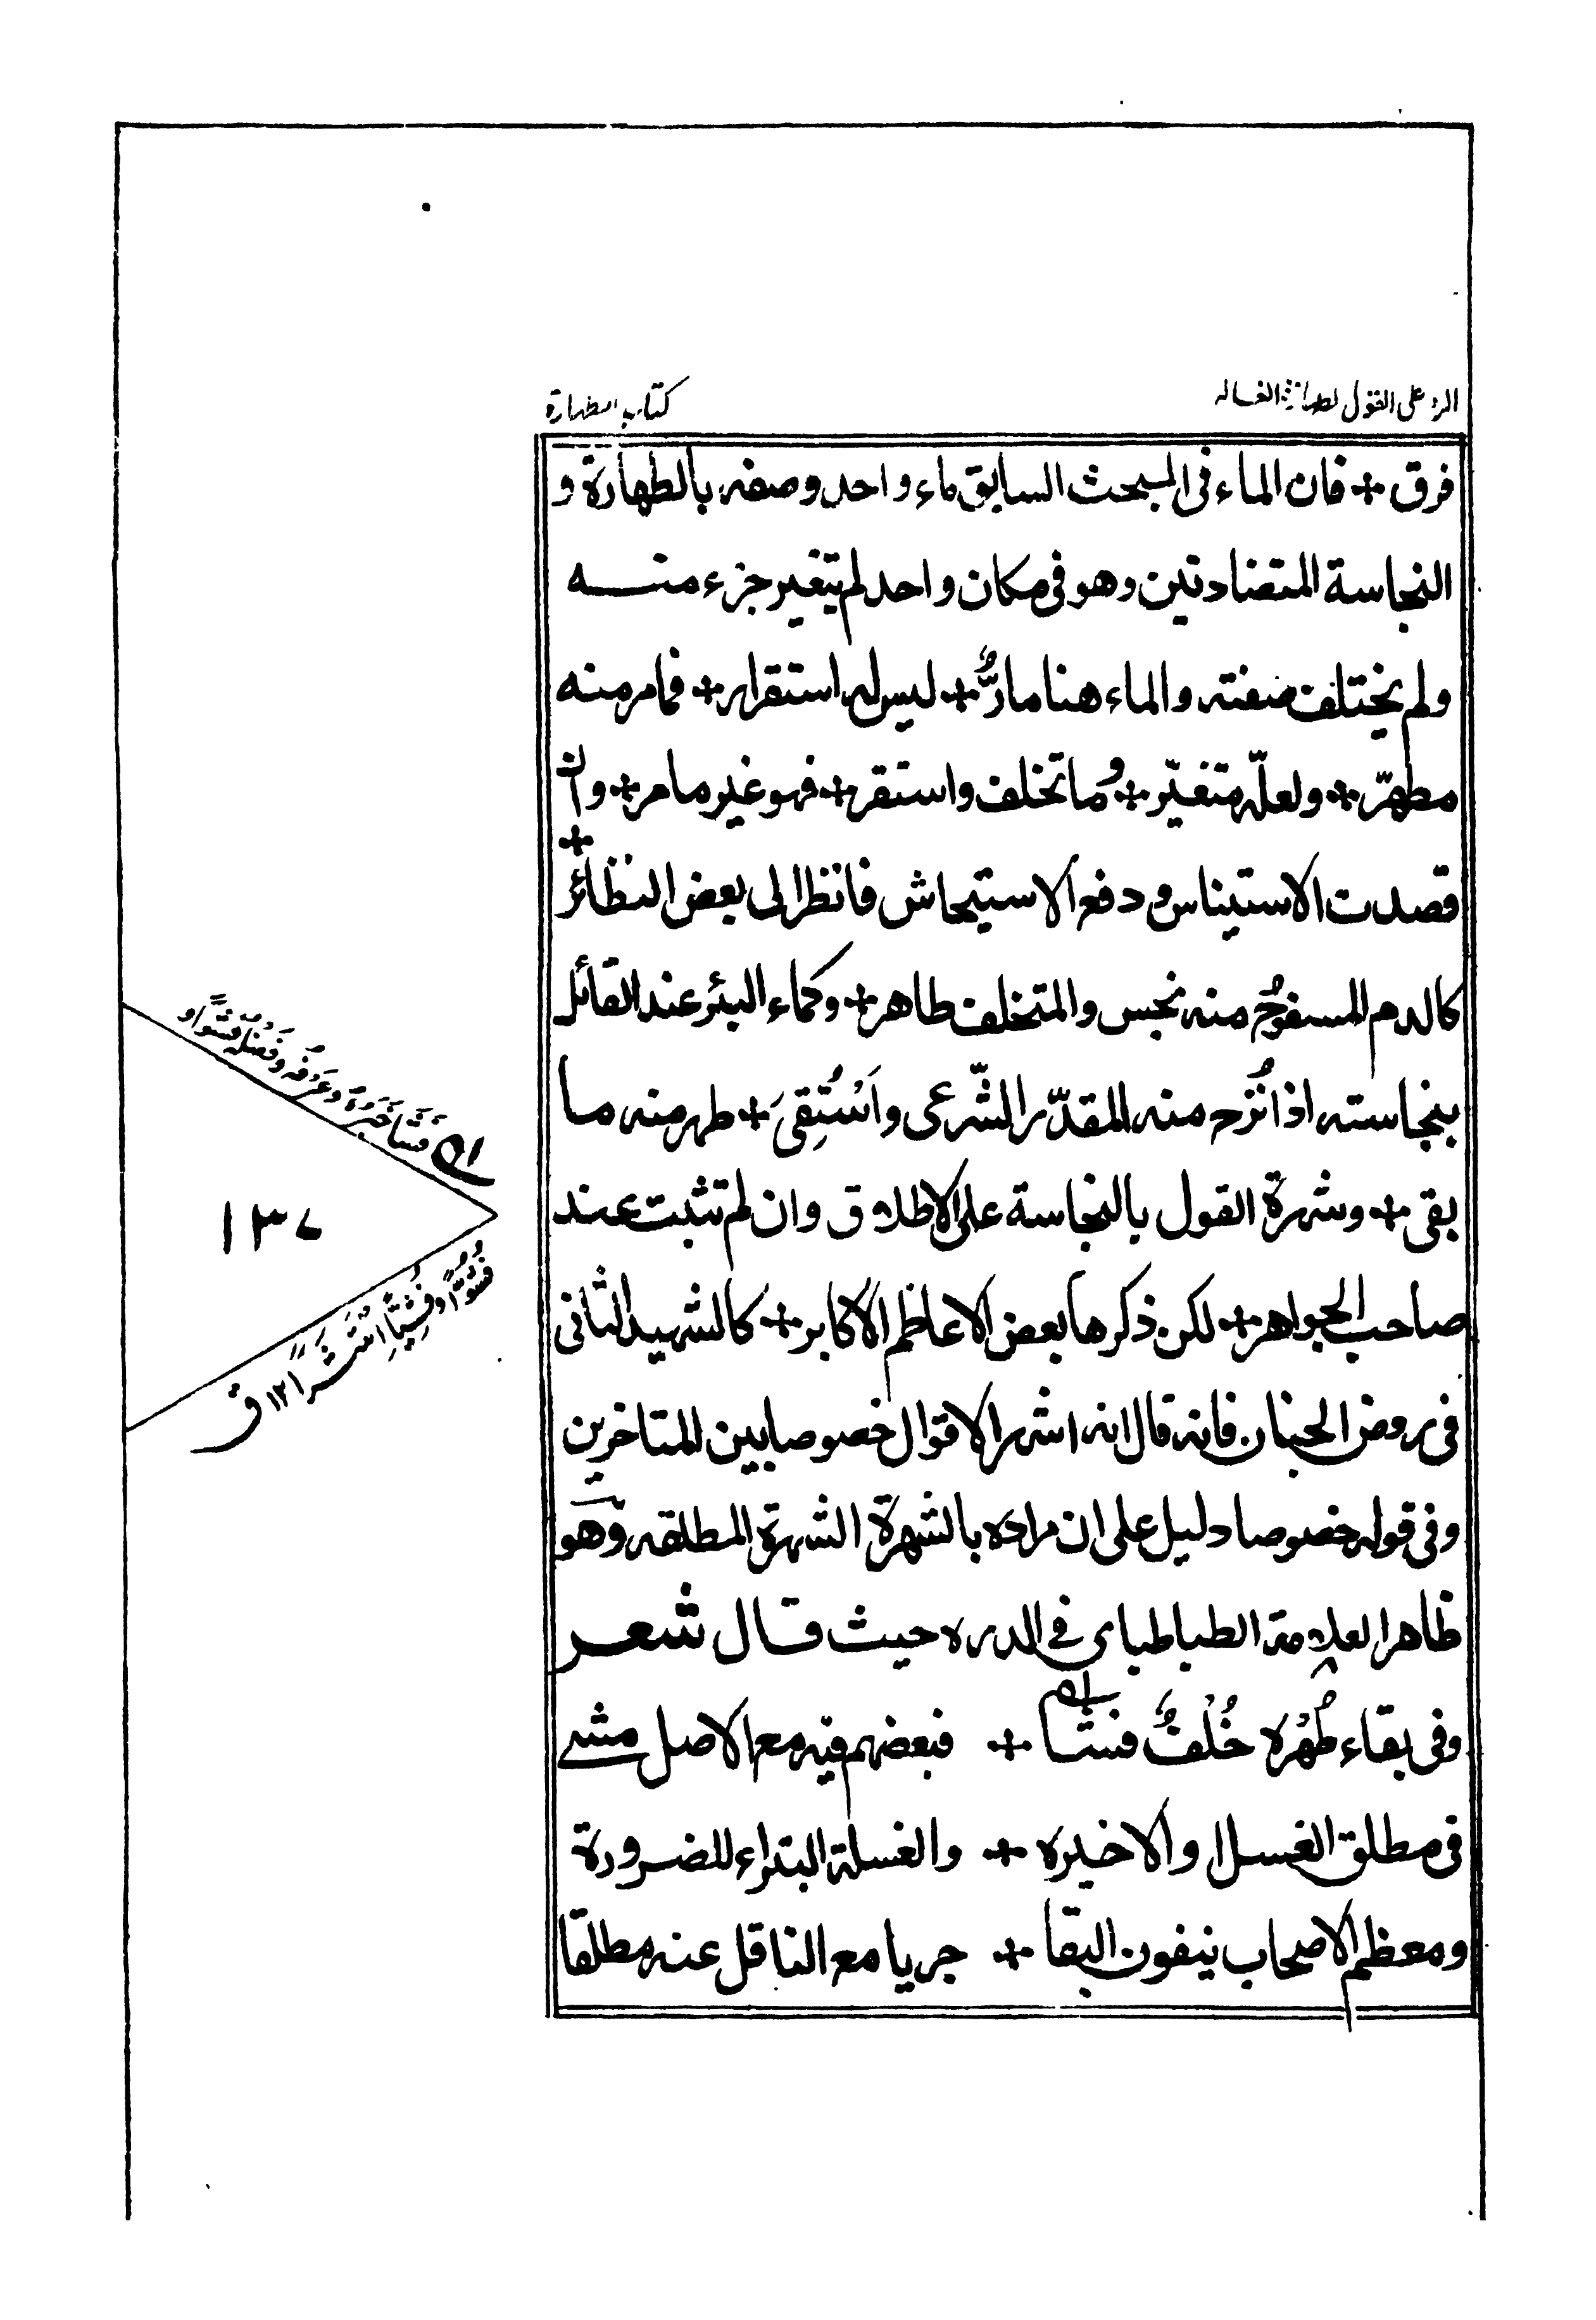 الرد على القول بطهارة الغساله
كتاب الطهارة
فرق + فان الماء فى المبحث السابق ماء واحد وصفه بالطهارة و
النجاسة المتضادتين وهو فى مكان واحد لم يتغير جزء منه
ولم يختلف صفته والماء هنا مارٌّ + ليس له استقرار + فما مر منه
مطهّر + ولعلّه متغيّر + وُما تخلف واستقر + فهو غير ما مر + وان
قصدت الاستيناس و دفع الاستيحاش فانظر الى بعض النظائر +
كالدم المسفوحُ منه نجس والمتخلف طاهر + وكماء البئر عند القائل
بنجاسته اذا نُزح منه المقدّر الشّرعى واَسْتُقِىَ + طهر منه ما
بقى + وشهرة القول بالنجاسة على الاطلاق وان لم تثبت عند
صاحب الجواهر + لكن ذكرها بعض الاعاظم الاكابر + كالشهيد الثانى
فى روض الجنان فانه قال انه اشهر الاقوال خصوصا بين المتاخرين
وفى قوله خصوصا دليل على ان مراده بالشهرة الشهرة المطلقه وهو
ظاهر العلامة الطباطباى فى الدره حيث قال شعر
وفى بقاء طُهْره خُلْفٌ فشا + فبعضهم فيه مع الاصل مشى
فى مطلق الغسل او الاخيره + والغسلة البتراء للضرورة
ومعظم الاصحاب ينفون البقا + جريا مع الناقل عنه مطلقا
فَشَا خَبَرُهُ وعَرْفُه وفضله فَشْوًا و
فُشُوًّا وفُشِيًّا انْتَشَرَ ١٢ ق
١٣٧